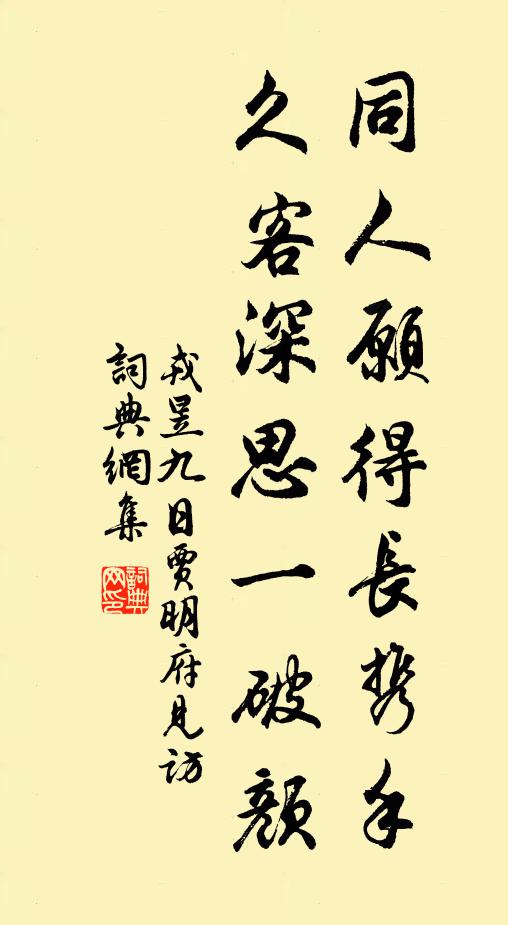 同人願得長携手
久客深思一破顏
戎昱九日賈明府見訪
詞典網集
詞典
网印